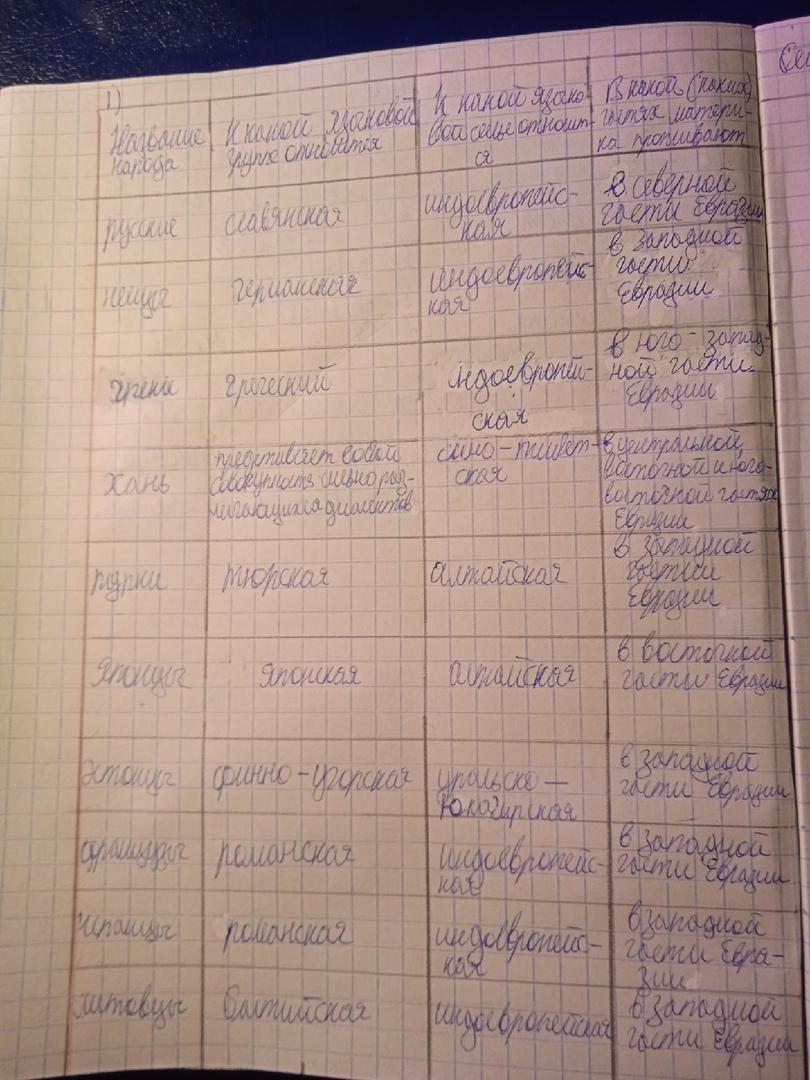 1)
Название
народа
К какой языковой
группе относится
К какой языко-
вой семье относит-
ся
В какой (каких)
частях матери-
ка проживают
русские
славянская
индоевропейс-
кая
в северной
части Евразии
немцы
германская
индоевропейс-
кая
в западной
части
Евразии
греки
греческий
ндоевропей-
ская
в юго-запад-
ной части
Евразии
хань
представляет собой
совокупность сильно раз-
личающихся диалектов
сино-тибет-
ская
в центральной
восточной и юго-
восточной частях
Евразии
турки
тюрская
алтайская
в западной
части
Евразии
Японцы
японская
алтайская
в восточной
части Евразии
эстонцы
финно-угорская
уральско-
юкагирская
в западной
части Евразии
французы
романская
индоевропейс-
кая
в западной
части Евразии
испанцы
романская
индоевропейс-
кая
в западной
части Евра-
зии
литовцы
балтийская
индоевропейская
в западной
части Евразии